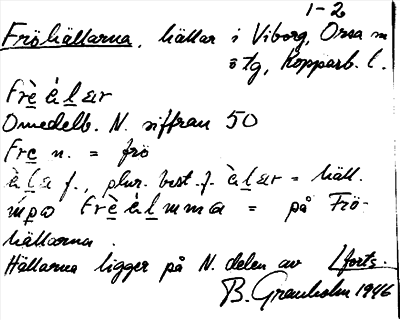 1-2
Fröhällarna, hällar i Viborg, Orsa sn
ö tg, Kopparb. l.
frè̱ à̱ḻar
Omedelb. N. siffran 50
fre̱ n. = frö
à̱ḻa f., plur. best. f. à̱ḻar = häll.
frè̱ à̱ḻmma = på Frö-
hällarna.
Hällarna ligger på N. delen av (forts.
B. Granholm 1946